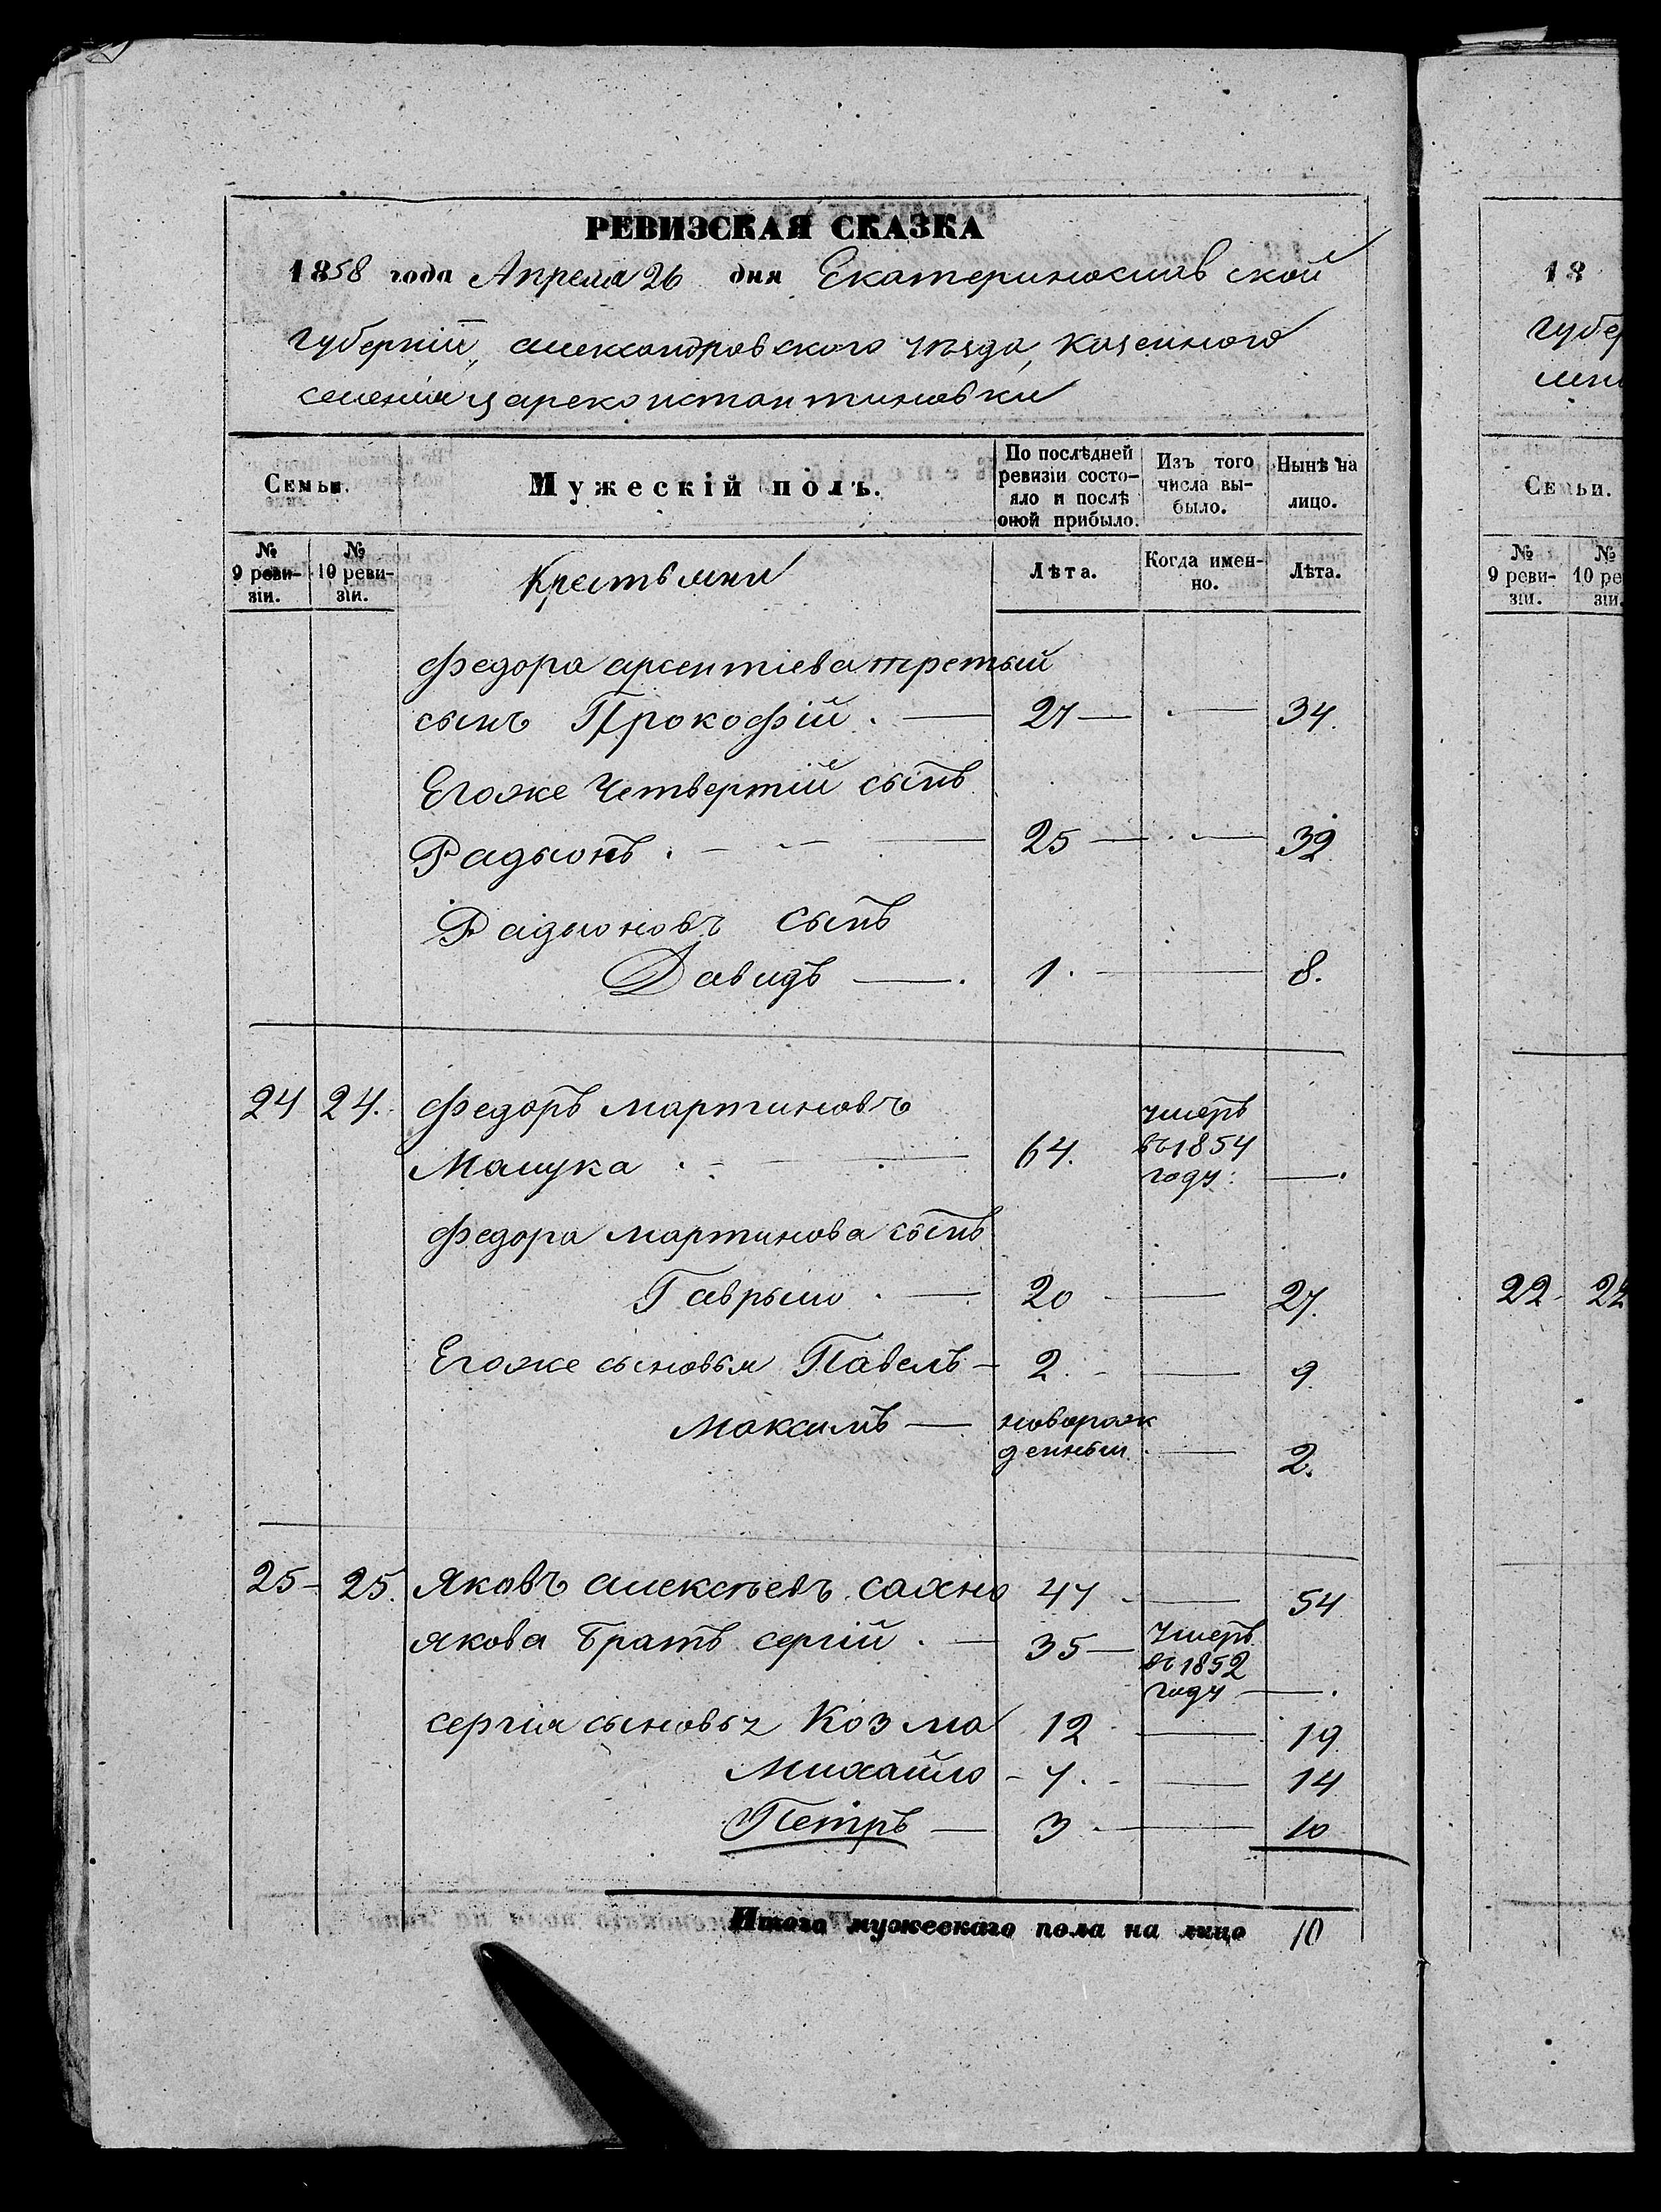 РЕВИЗСКАЯ СКАЗКА
1858 года Апреля 26 дня Екатеринославской
губерніи, александровского уезда, казенного
селенія цареконстантиновки
Семьи.
Мужескій полъ.
По послѣдней ревизіи состояло и послѣ оной прибыло.
Изъ того числа выбыло.
Нынѣ на лицо.
№ 9 ревизіи.
№ 10 ревизіи.
Крестьяни
Лѣта.
Когда именно.
Лѣта.
Федора арсентіева третый
сынъ Прокофій . — 27 — . — 34.
Егоже Четвертій сынъ
Радыонъ . — 25 — . — 32.
Радыоновъ сынъ
Давидъ — . 1. — 8.
24 24. Федоръ мартиновъ
Мацука . — 64. умеръ въ 1854 году. — .
Федора мартинова сынъ
Гаврыло . — 20 — 27.
Егоже сыновья Павелъ — 2. — 9.
Максимъ — новорожденный. — 2.
25 - 25. Яковъ алексѣевъ сахно 47 — 54
якова Братъ сергій . — 35 — Умеръ въ 1852 году — .
сергія сыновья Козма 12 — 19.
Михайло - 7. - — 14
Петръ — 3 — 10
Итого мужескаго пола на лицо 10
18
губер
Семьи.
№ 9 ревизіи.
№ 10 ре
зіи.
22 - 22